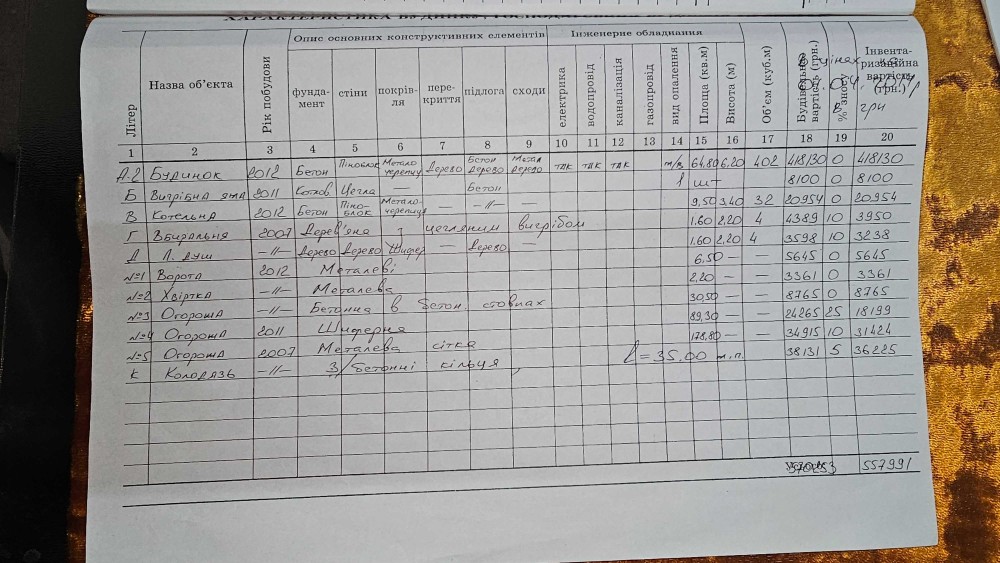 ХАРАКТЕРИСТИКА БУДИНКУ, ГОСПОДАР
Літер Назва об'єкта Рік побудови Опис основних конструктивних елементів Інженерне обладнання Площа (кв.м) Висота (м) Об'єм (куб.м) Будівельна вартість (грн.) % зносу Інвентаризаційна вартість (грн.)
фундамент стіни покрівля перекриття підлога сходи електрика водопровід каналізація газопровід вид опалення
в цінах на
грн
1 2 3 4 5 6 7 8 9 10 11 12 13 14 15 16 17 18 19 20
А-2 Будинок 2012 Бетон Піноблок Металочерепиця Дерево Бетон дерево Метал дерево так так так т/в 64,80 6,20 402 418130 0 418130
Б Вигрібна яма 2011 Котлов Цегла — Бетон 1 шт 8100 0 8100
В Котельна 2012 Бетон Піноблок Металочерепиця — -//- — 9,50 3,40 32 20954 0 20954
Г Вбиральня 2007 Дерев'яна з цегляним вигрібом 1.60 2.20 4 4389 10 3950
Д Л. душ -//- Дерево Дерево Шифер — Дерево — 1.60 2,20 4 3598 10 3238
№1 Ворота 2012 Металеві 6,50 — — 5645 0 5645
№2 Хвіртка -//- Металева 2,20 — — 3361 0 3361
№3 Огорожа -//- Бетонна в бетон. стовпах 30,50 — — 8765 0 8765
№4 Огорожа 2011 Шиферня 89,30 — — 24265 25 18199
№5 Огорожа 2007 Металева сітка 178,80 — — 34915 10 31424
К Колодязь -//- З/бетонні кільця, l = 35.00 м.п. 38131 5 36225
570253 557991